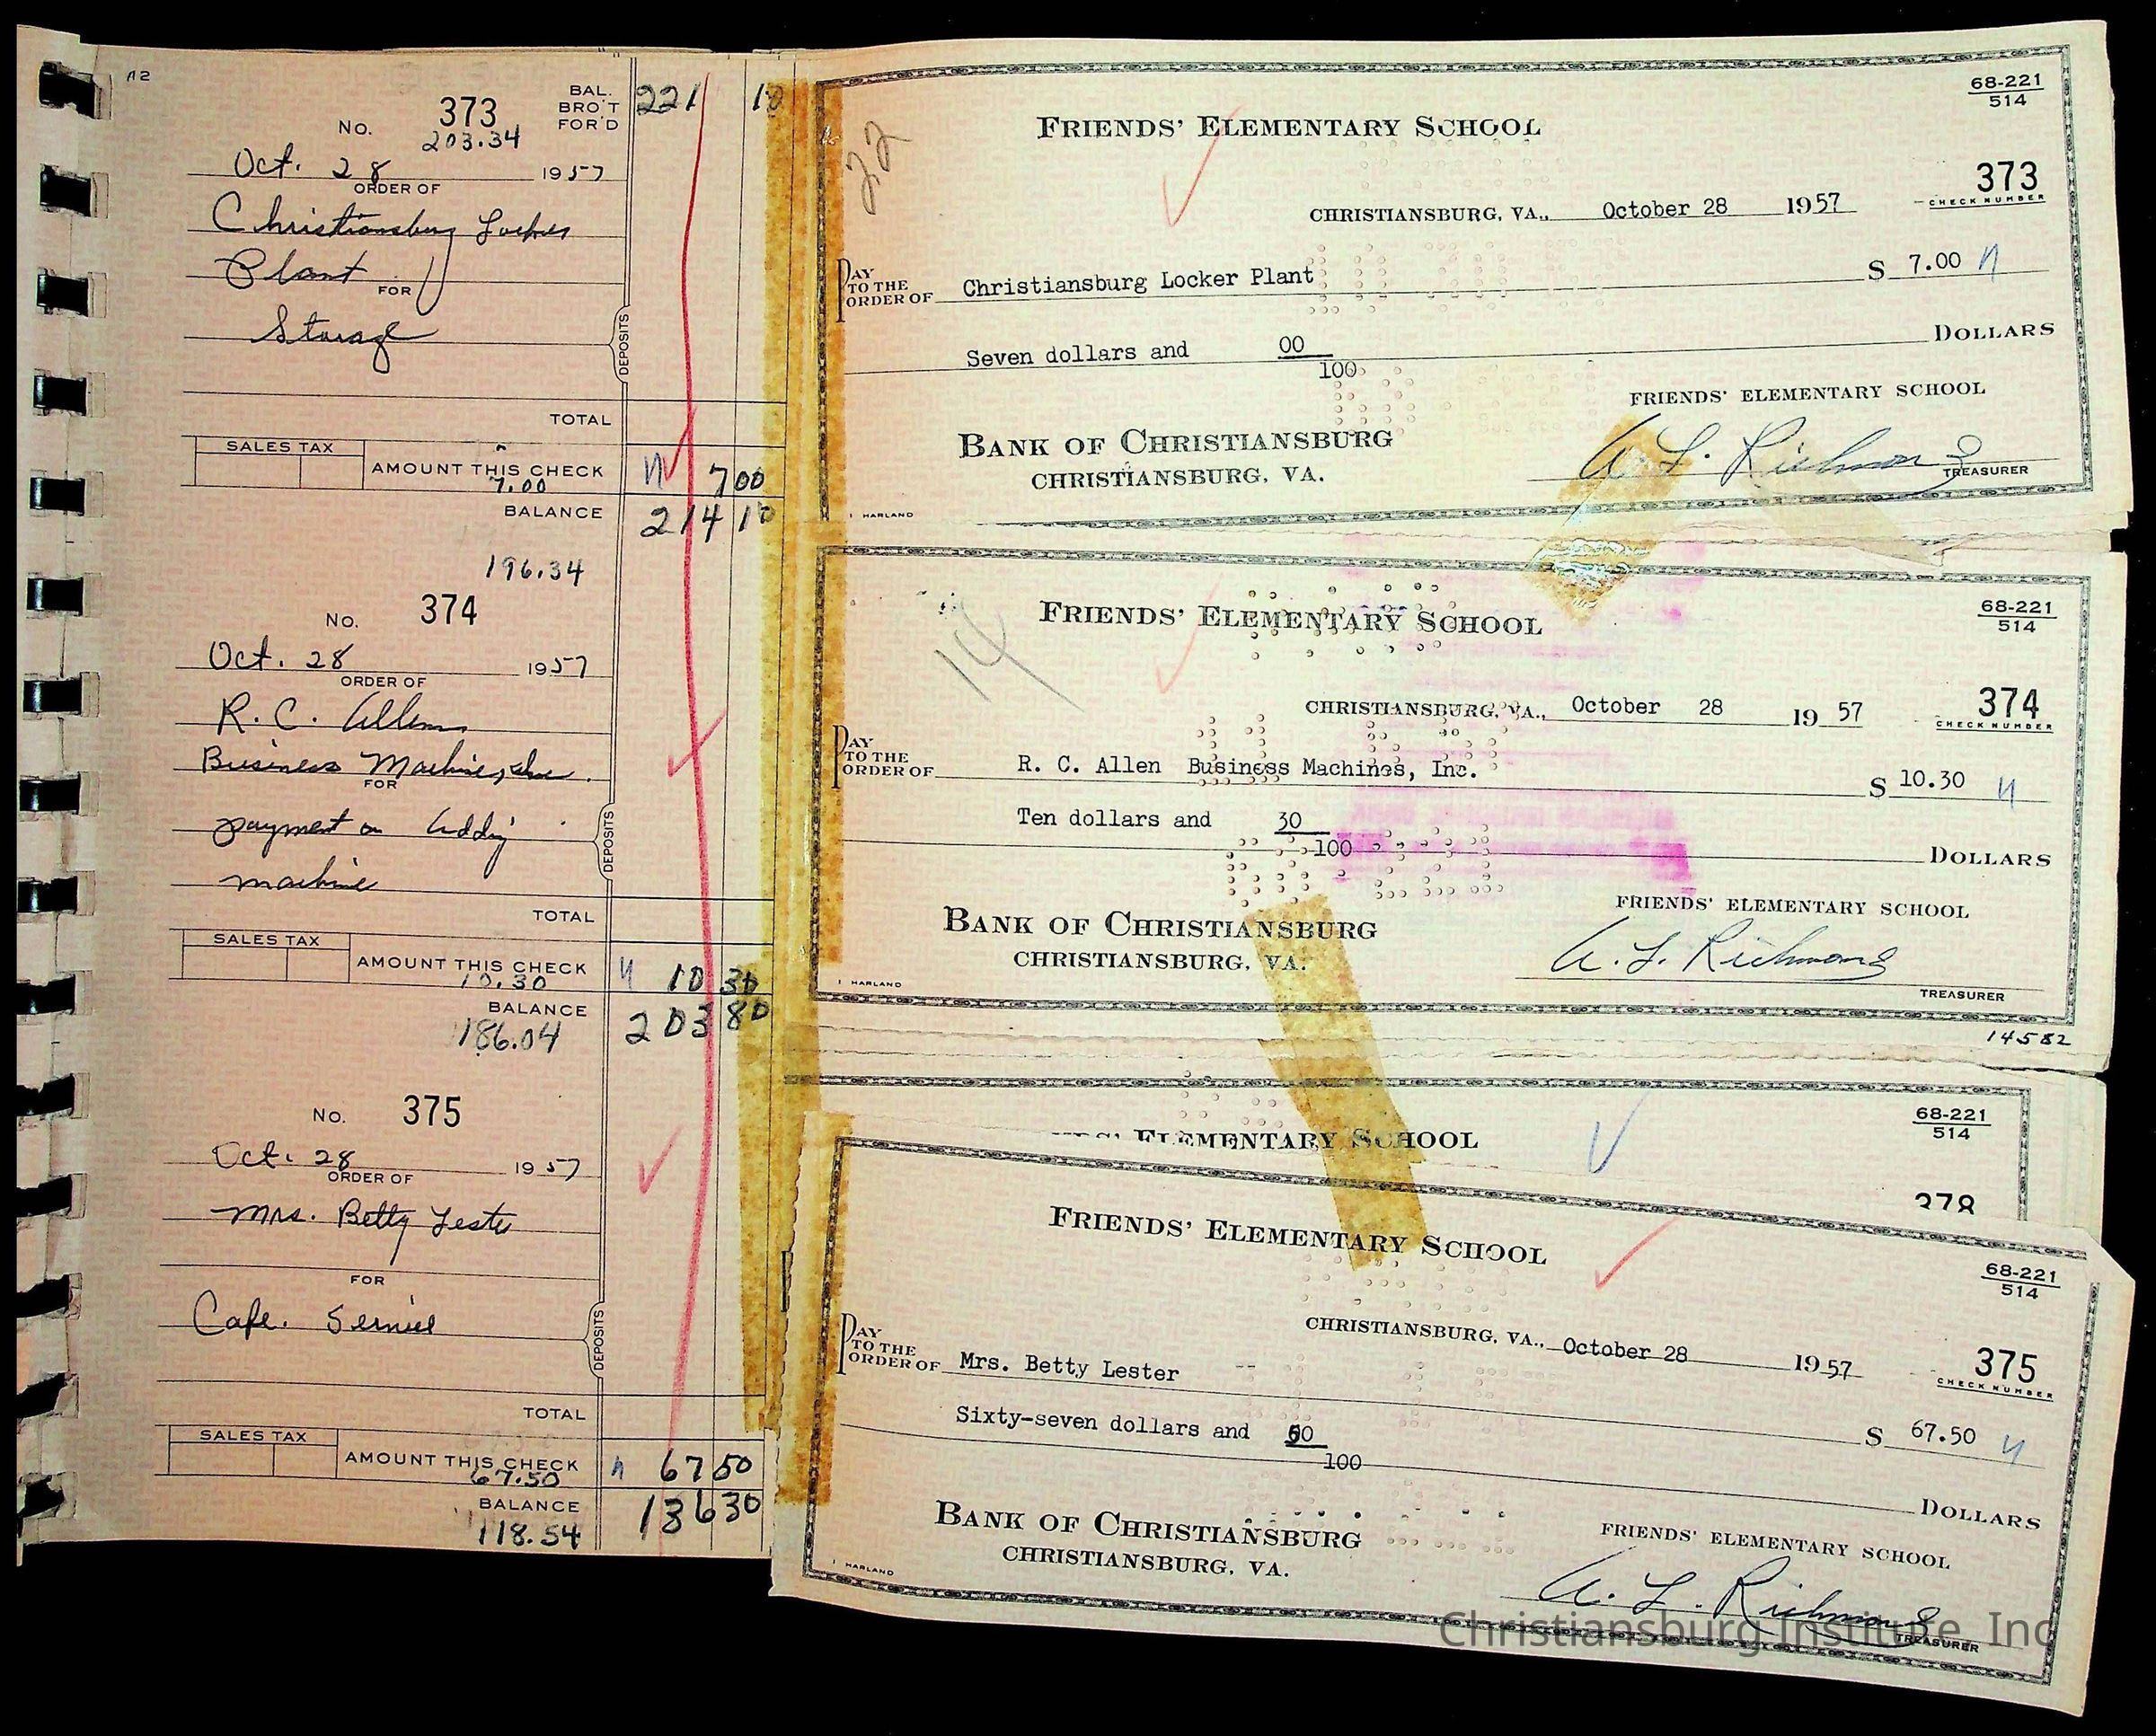 12
No. 373
BAL. BRO'T FOR'D
221 10
203.34
Oct. 28 1957
ORDER OF
Christiansburg Locker
Plant
FOR
Storage
DEPOSITS
TOTAL
SALES TAX
AMOUNT THIS CHECK
7.00
7 00
BALANCE
214 10
196.34
No. 374
Oct. 28 1957
ORDER OF
R. C. Allen
Business Machines, Inc.
FOR
payment on Adding
machine
DEPOSITS
TOTAL
SALES TAX
AMOUNT THIS CHECK
10.30
10 30
BALANCE
203 80
186.04
No. 375
Oct. 28 1957
ORDER OF
Mrs. Betty Lester
FOR
Cafe. Service
DEPOSITS
TOTAL
SALES TAX
AMOUNT THIS CHECK
67.50
67 50
BALANCE
136 30
118.54
22
68-221
514
FRIENDS' ELEMENTARY SCHOOL
373
CHECK NUMBER
CHRISTIANSBURG, VA., October 28 1957
PAY TO THE ORDER OF Christiansburg Locker Plant $ 7.00
Seven dollars and 00/100 DOLLARS
FRIENDS' ELEMENTARY SCHOOL
BANK OF CHRISTIANSBURG
CHRISTIANSBURG, VA.
A. L. Richmond
TREASURER
HARLAND
14
68-221
514
FRIENDS' ELEMENTARY SCHOOL
374
CHECK NUMBER
CHRISTIANSBURG, VA., October 28 1957
PAY TO THE ORDER OF R. C. Allen Business Machines, Inc. $ 10.30
Ten dollars and 30/100 DOLLARS
FRIENDS' ELEMENTARY SCHOOL
BANK OF CHRISTIANSBURG
CHRISTIANSBURG, VA.
A. L. Richmond
TREASURER
HARLAND
14582
68-221
514
ELEMENTARY SCHOOL
378
FRIENDS' ELEMENTARY SCHOOL
68-221
514
375
CHECK NUMBER
CHRISTIANSBURG, VA., October 28 1957
PAY TO THE ORDER OF Mrs. Betty Lester $ 67.50
Sixty-seven dollars and 50/100 DOLLARS
FRIENDS' ELEMENTARY SCHOOL
BANK OF CHRISTIANSBURG
CHRISTIANSBURG, VA.
A. L. Richmond
TREASURER
HARLAND
Christiansburg Institute, Inc